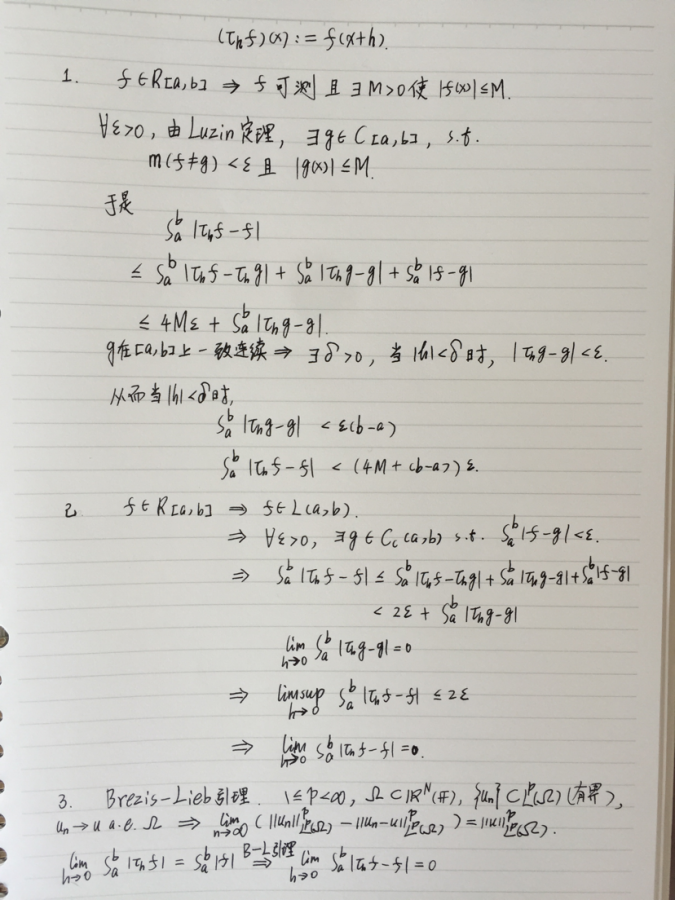 (τₕf)(x) := f(x+h).
1. f∈R[a,b] ⇒ f 可测 且 ∃M>0 使 |f(x)|≤M.
∀ε>0, 由 Luzin 定理, ∃g∈C[a,b], s.t.
m(f≠g) <ε 且 |g(x)|≤M.
于是
∫ₐᵇ |τₕf-f|
≤ ∫ₐᵇ |τₕf-τₕg| + ∫ₐᵇ |τₕg-g| + ∫ₐᵇ |f-g|
≤ 4Mε + ∫ₐᵇ |τₕg-g|.
g在[a,b]上一致连续 ⇒ ∃δ>0, 当 |h|<δ 时, |τₕg-g|<ε.
从而当|h|<δ时,
∫ₐᵇ |τₕg-g| < ε(b-a)
∫ₐᵇ |τₕf-f| < (4M+(b-a)) ε.
2. f∈R[a,b] ⇒ f∈L(a,b).
⇒ ∀ε>0, ∃g∈C_c(a,b) s.t. ∫ₐᵇ|f-g|<ε.
⇒ ∫ₐᵇ |τₕf-f| ≤ ∫ₐᵇ |τₕf-τₕg| + ∫ₐᵇ |τₕg-g| + ∫ₐᵇ |f-g|
< 2ε + ∫ₐᵇ |τₕg-g|
lim_{h→0} ∫ₐᵇ |τₕg-g| = 0
⇒ limsup_{h→0} ∫ₐᵇ |τₕf-f| ≤ 2ε
⇒ lim_{h→0} ∫ₐᵇ |τₕf-f| = 0.
3. Brezis-Lieb引理. 1≤p<∞, Ω⊂ℝᴺ(开), {uₙ}⊂Lᵖ(Ω)(有界),
uₙ→u a.e. Ω ⇒ lim_{n→∞} (||uₙ||ᵖ_{Lᵖ(Ω)} - ||uₙ-u||ᵖ_{Lᵖ(Ω)}) = ||u||ᵖ_{Lᵖ(Ω)}.
lim_{h→0} ∫ₐᵇ |τₕf| = ∫ₐᵇ |f| B-L引理 ⇒ lim_{h→0} ∫ₐᵇ |τₕf-f| = 0